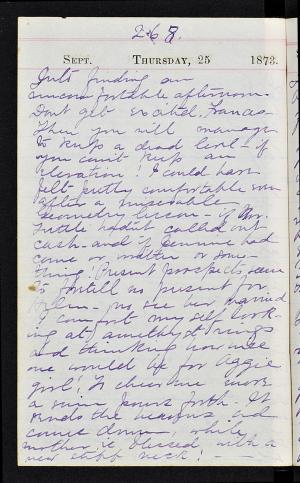 268.
SEPT. THURSDAY, 25 1873.
Just finding an
uncomfortable afternoon.
Don't get excited, Frances
Then you will manage
to keep a dead level - if
you can't keep an
elevation! I could have
felt pretty comfortable even
after a miserable
Geometry lesson - if Mr.
Tuttle hadn't called out
cash - and if Jennie had
come or written or some-
thing! Present prospects seem
to fortell no present for
- no, see her married
I comfort myself look-
ing at amethyst rings
and thinking how nice
one would be for Aggie
girl! To cheer me more
a rain pours forth. It
ends the and
comes down, while
mother is blessed with a
new stiff neck! -